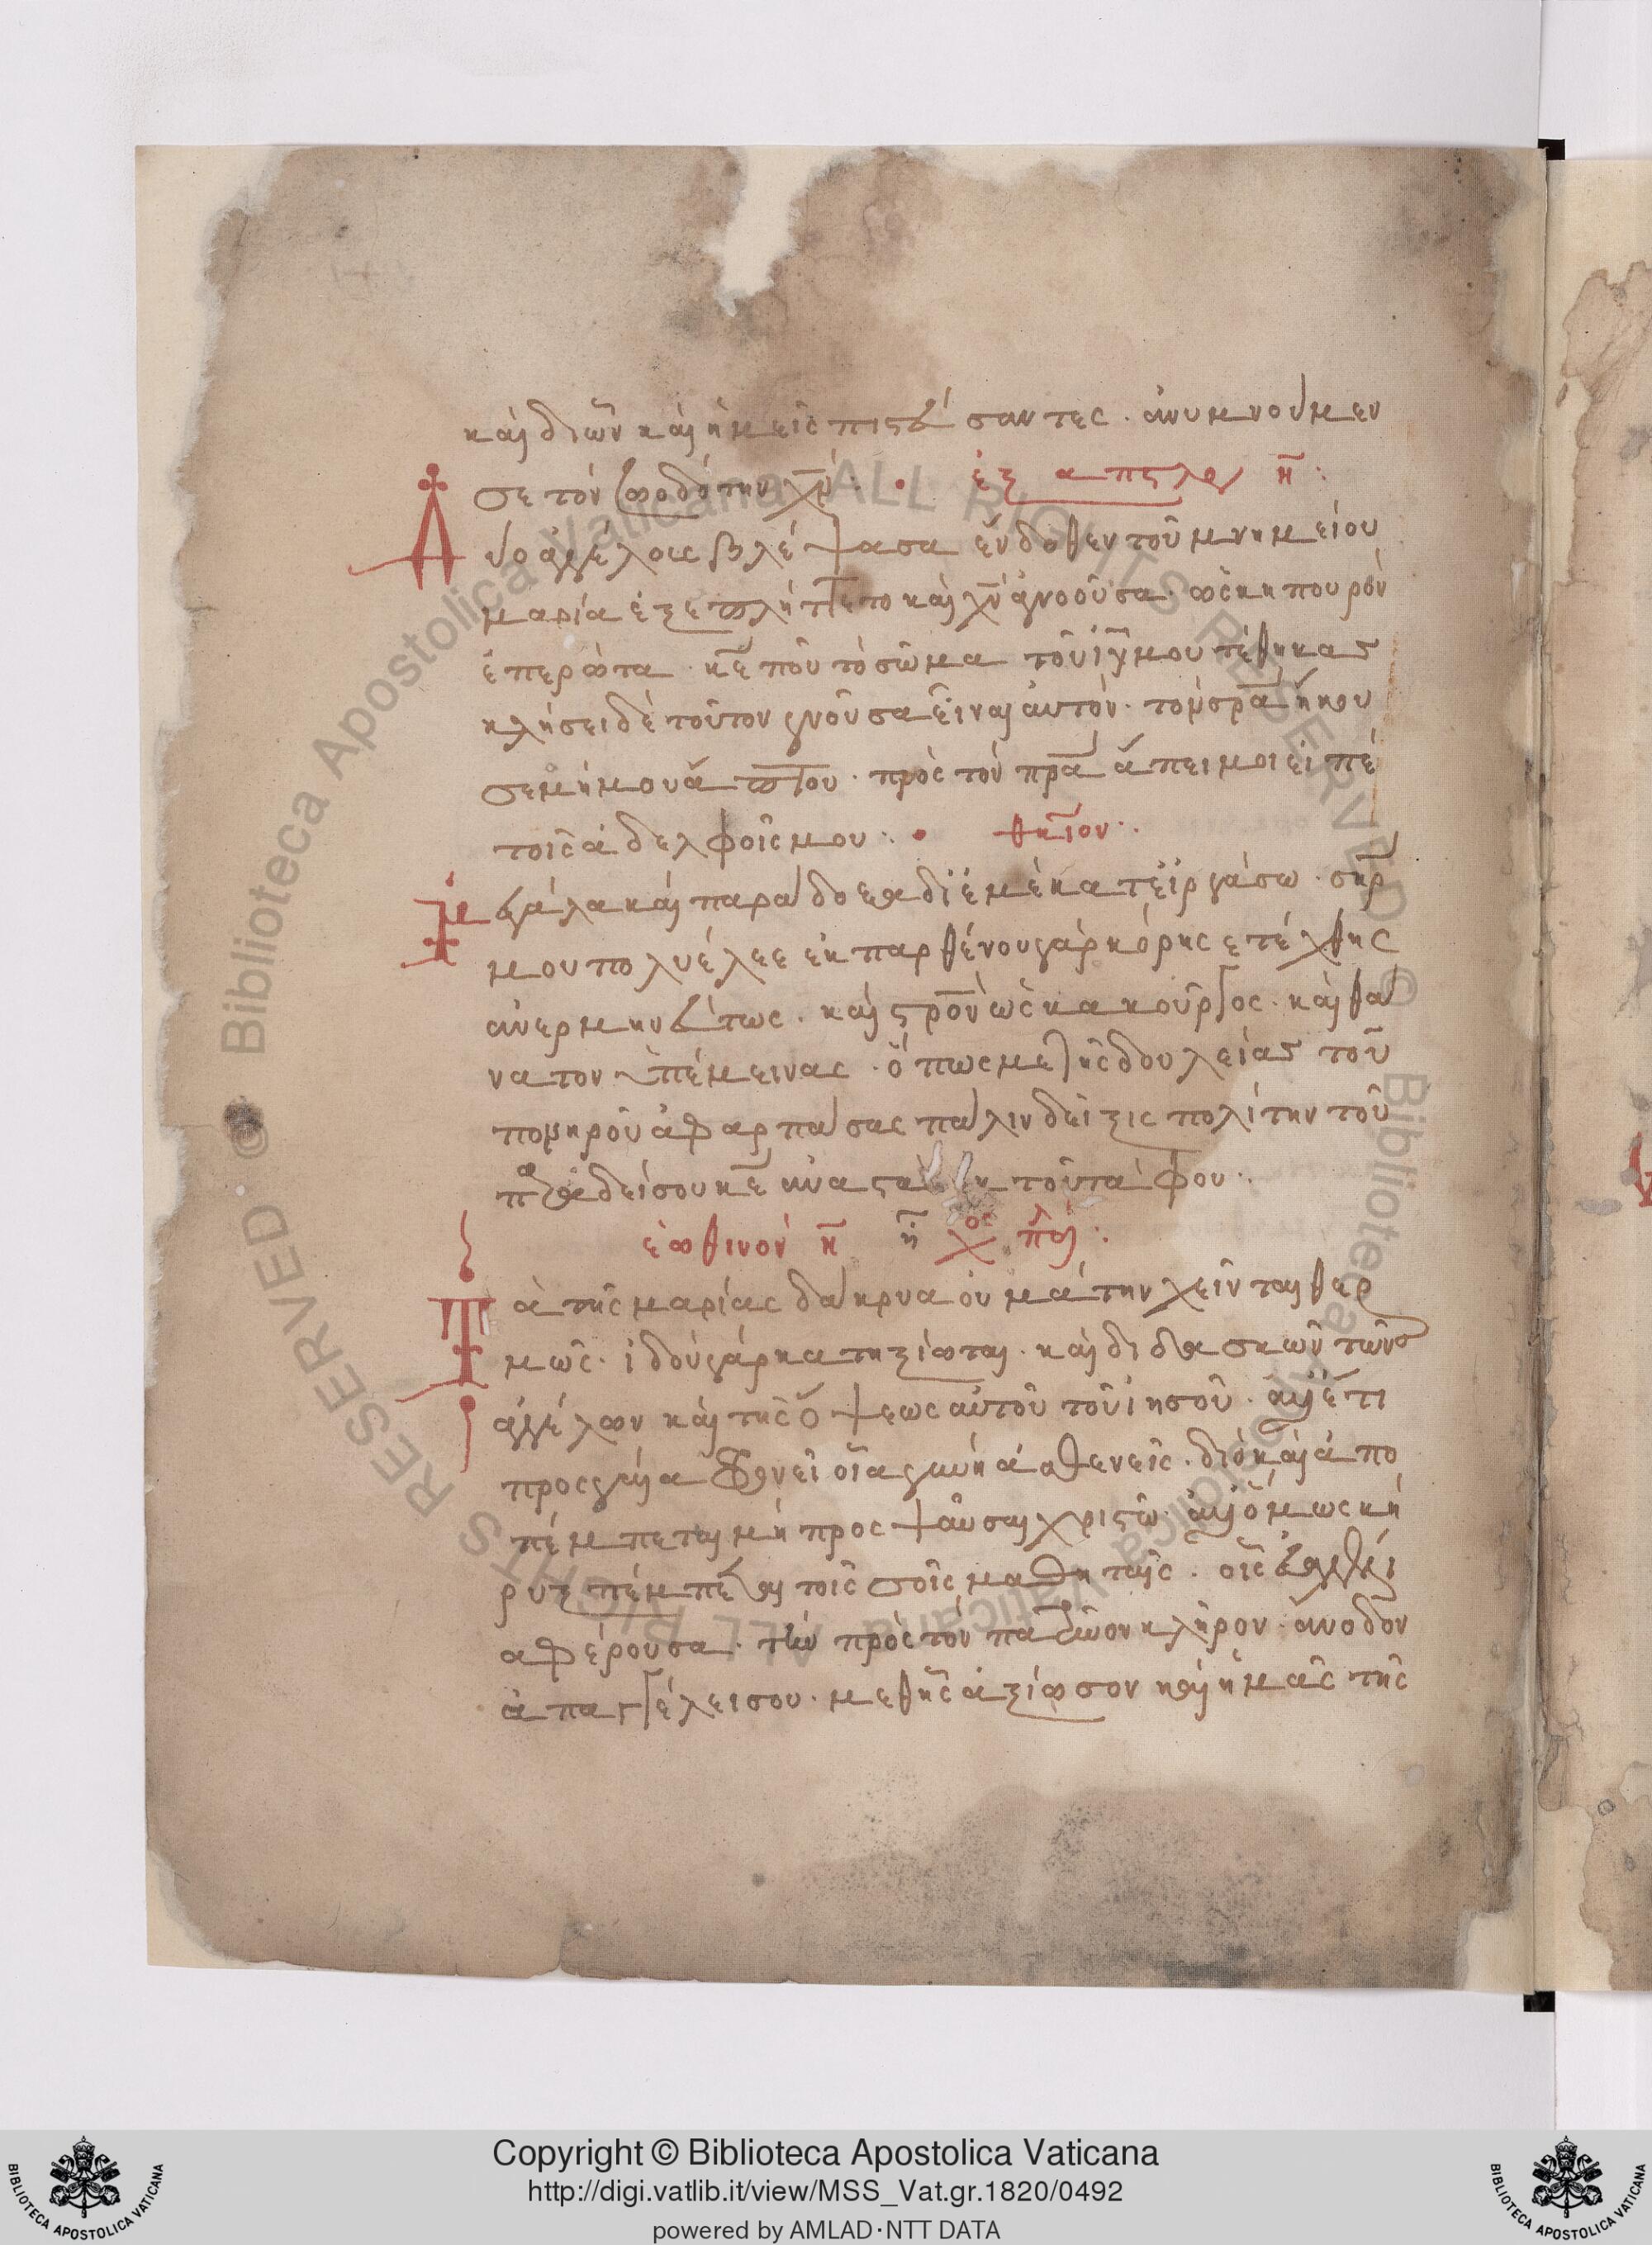 καὶ δι ὧν καὶ ἡμεῖς πιστεύσαντες · ἀνυμνοῦμεν
σε τὸν ζωοδότην χν :· • ἐξαποστειλάριον η̄ :
Δύο ἀγγέλους βλέψασα ἔνδοθεν τοῦ μνημείου
μαρία ἐξεπλήττετο καὶ χν ἀγνοοῦσα · ὡς κηπουρὸν
ἐπερώτα · κε ποῦ τὸ σῶμα τοῦ ιυ μου τέθηκας
κλήσει δὲ τοῦτον γνοῦσα εἶναι αὐτὸν · τὸν σρα ἤκου
σε μή μου ἅπτου · πρὸς τὸν πρα ἄπειμι εἰπὲ
τοῖς ἀδελφοῖς μου :· • θκίον :·
Μεγάλα καὶ παράδοξα δι ἐμὲ κατειργάσω · σηρ
μου πολυέλεε ἐκ παρθένου γὰρ κόρης ἐτέχθης
ἀνερμηνεύτως · καὶ στρον ὡς κακοῦργος · καὶ θά
νατον ὑπέμεινας · ὅπως με τῆς δουλείας τοῦ
πονηροῦ ἀφαρπάσας πάλιν δείξις πολίτην τοῦ
παραδείσου κε τοῦ τάφου :·
ἑωθινὸν η̄ ἦχος πλ :
Τὰ τῆς μαρίας δάκρυα οὐ μάτην χεῖνται θερ
μῶς · ἰδοὺ γὰρ κατηξίωται · καὶ διδασκῶν τῶν
ἀγγέλων καὶ τῆς ὄψεως αὐτοῦ τοῦ ἰησοῦ · ἀλλ ἔτι
πρόσγεια φρονεῖ οἷα γυνὴ ἀσθενεῖς · διὸ καὶ ἀπο
πέμπεται μὴ προσψαῦσαι χριστῷ · ἀλλ ὅμως κή
ρυξ πέμπεται τοῖς σοῖς μαθηταῖς · οἷς εὐαγγέλι
α φέρουσα · τὴν πρὸς τὸν πατρῷον κλῆρον · ἄνοδον
ἀπαγγέλει σου · μεθ ἧς ἀξίωσον καὶ ἡμᾶς τῆς
Copyright © Biblioteca Apostolica Vaticana
http://digi.vatlib.it/view/MSS_Vat.gr.1820/0492
powered by AMLAD·NTT DATA
BIBLIOTECA APOSTOLICA VATICANA
BIBLIOTECA APOSTOLICA VATICANA
© Biblioteca Apostolica Vaticana ALL RIGHTS RESERVED © Biblioteca Apostolica Vaticana ALL RIGHTS RESERVED